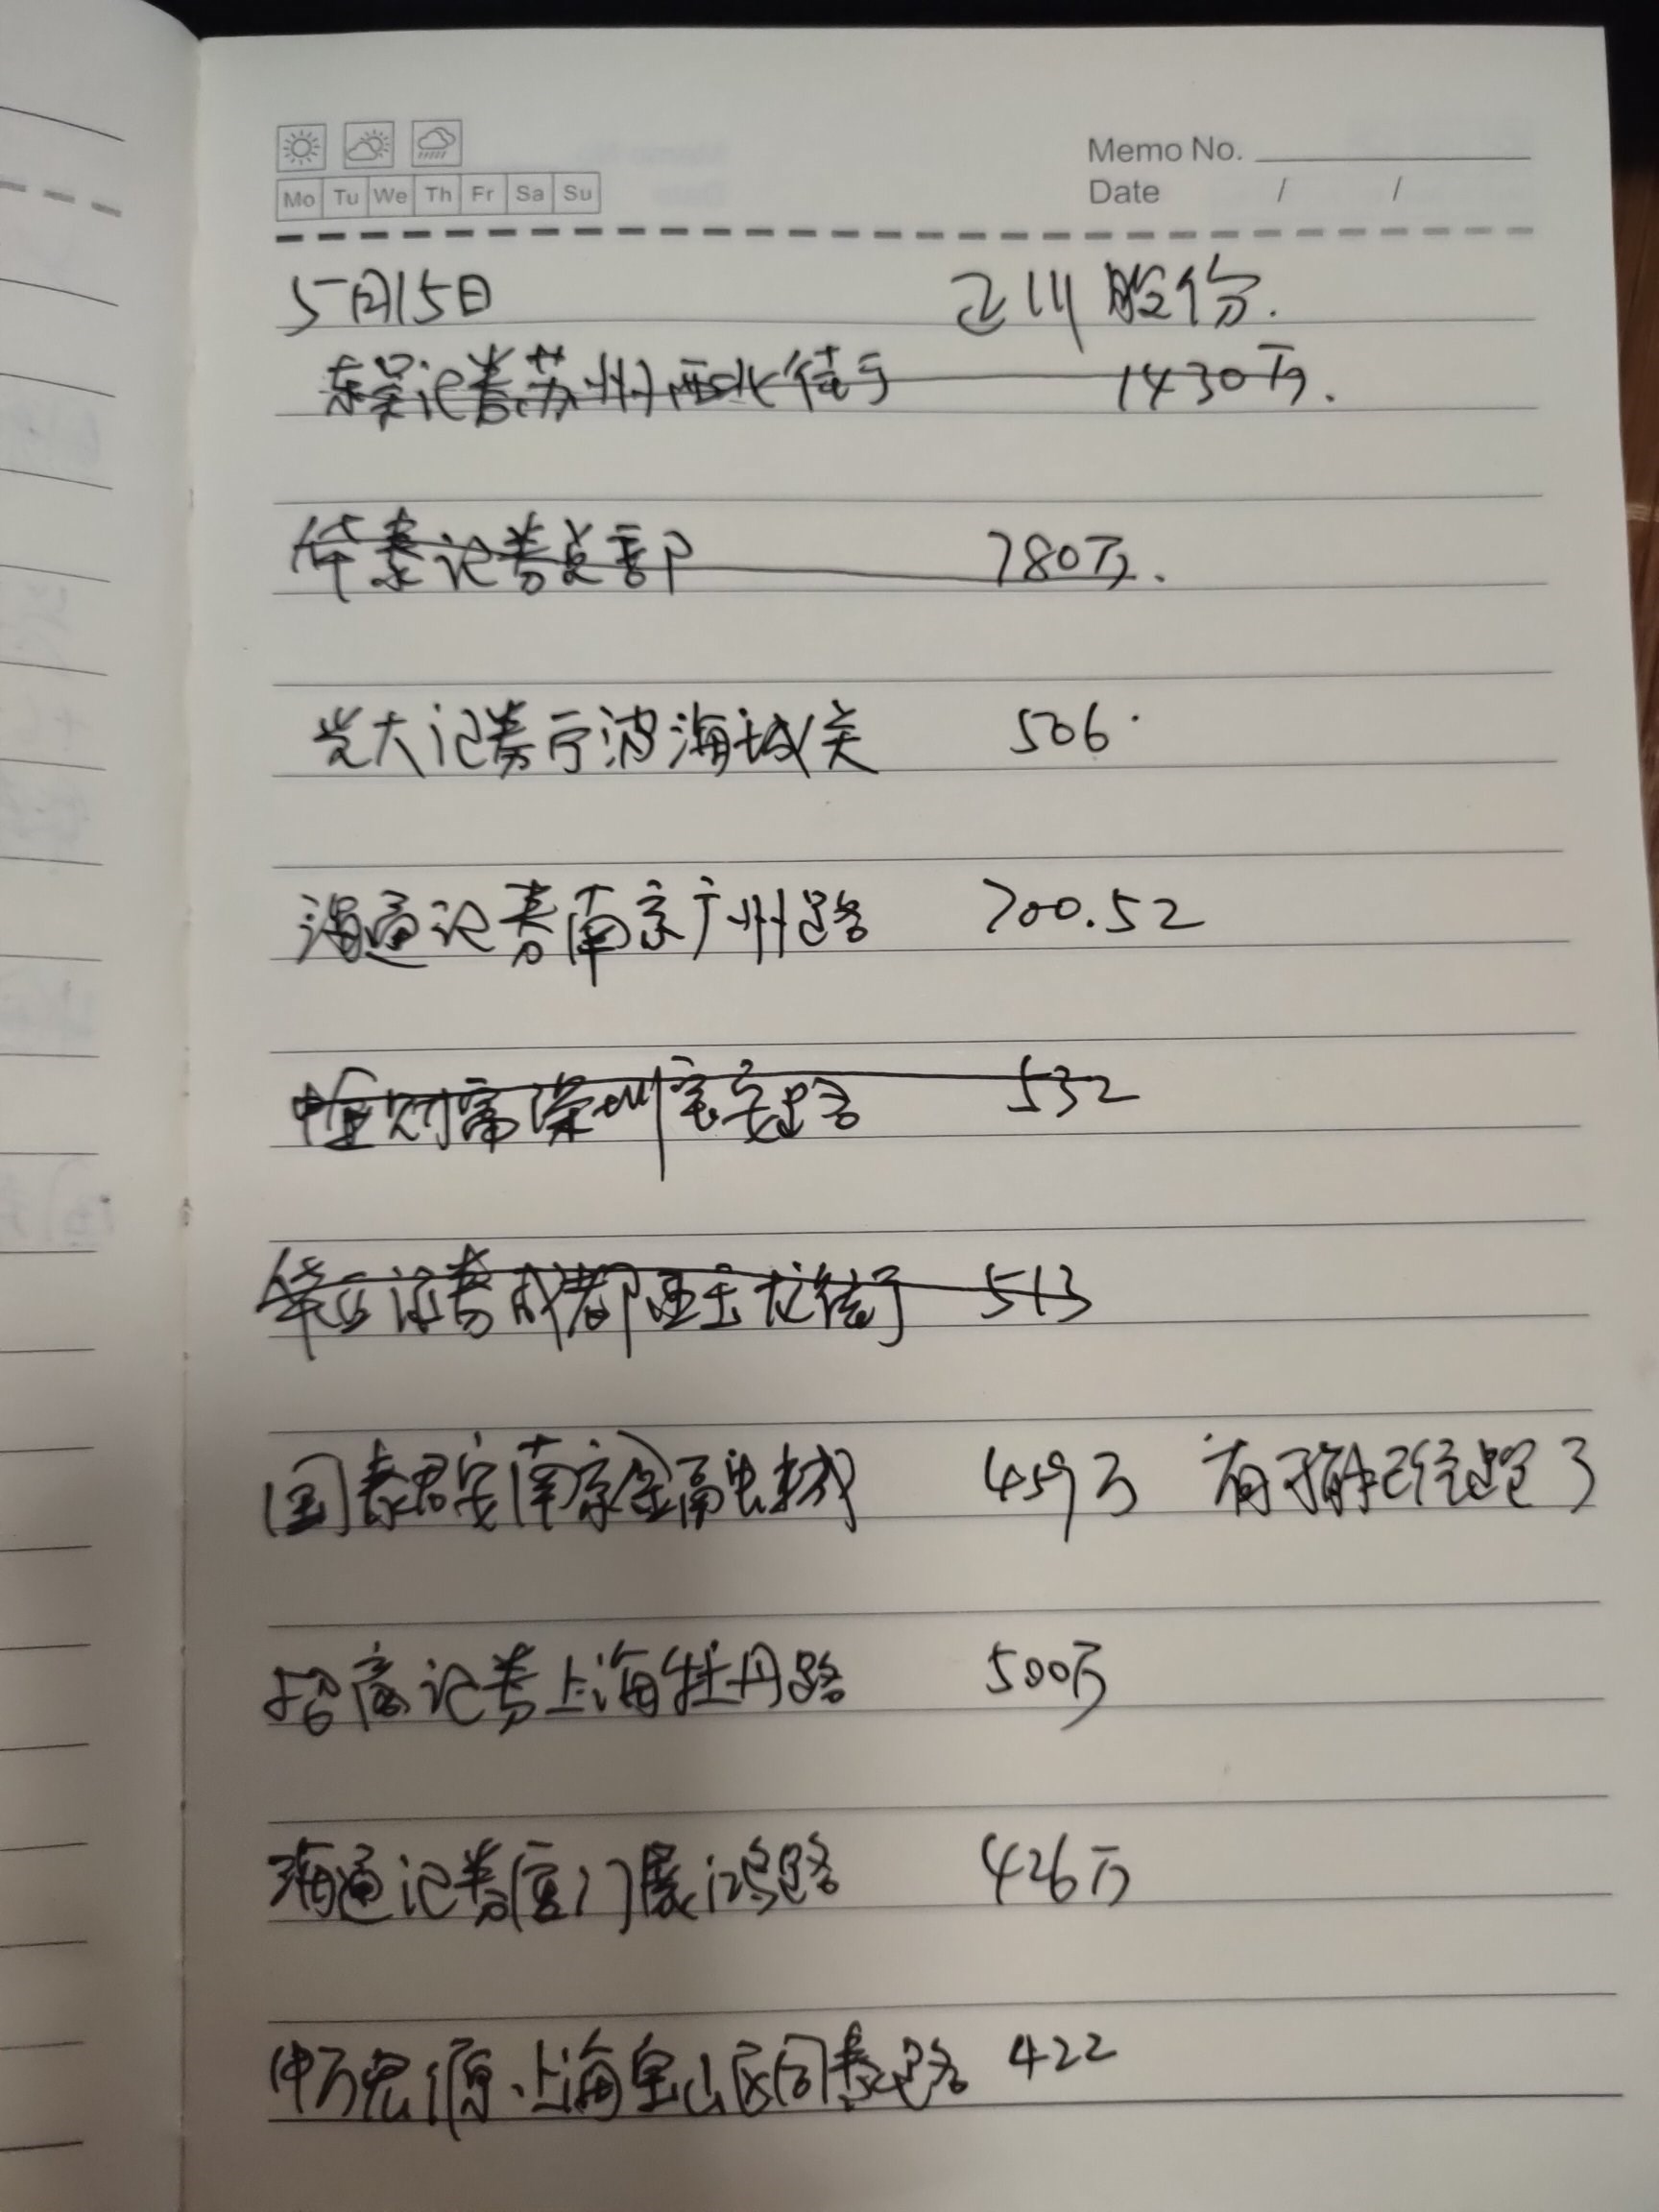 Memo No.
Mo Tu We Th Fr Sa Su
Date / /
5月15日 正川股份.
东吴证券苏州西北街 1430万.
华泰证券总部 780万.
光大证券宁波海城关 506
海通证券南京广州路 700.52
中金财富深圳宝安路 532
华西证券成都西玉龙街 513
国泰君安南京金融城 459万 有可能已经跑了
招商证券上海牡丹路 500万
海通证券厦门展鸿路 426万
申万宏源.上海宝山区同泰路 422